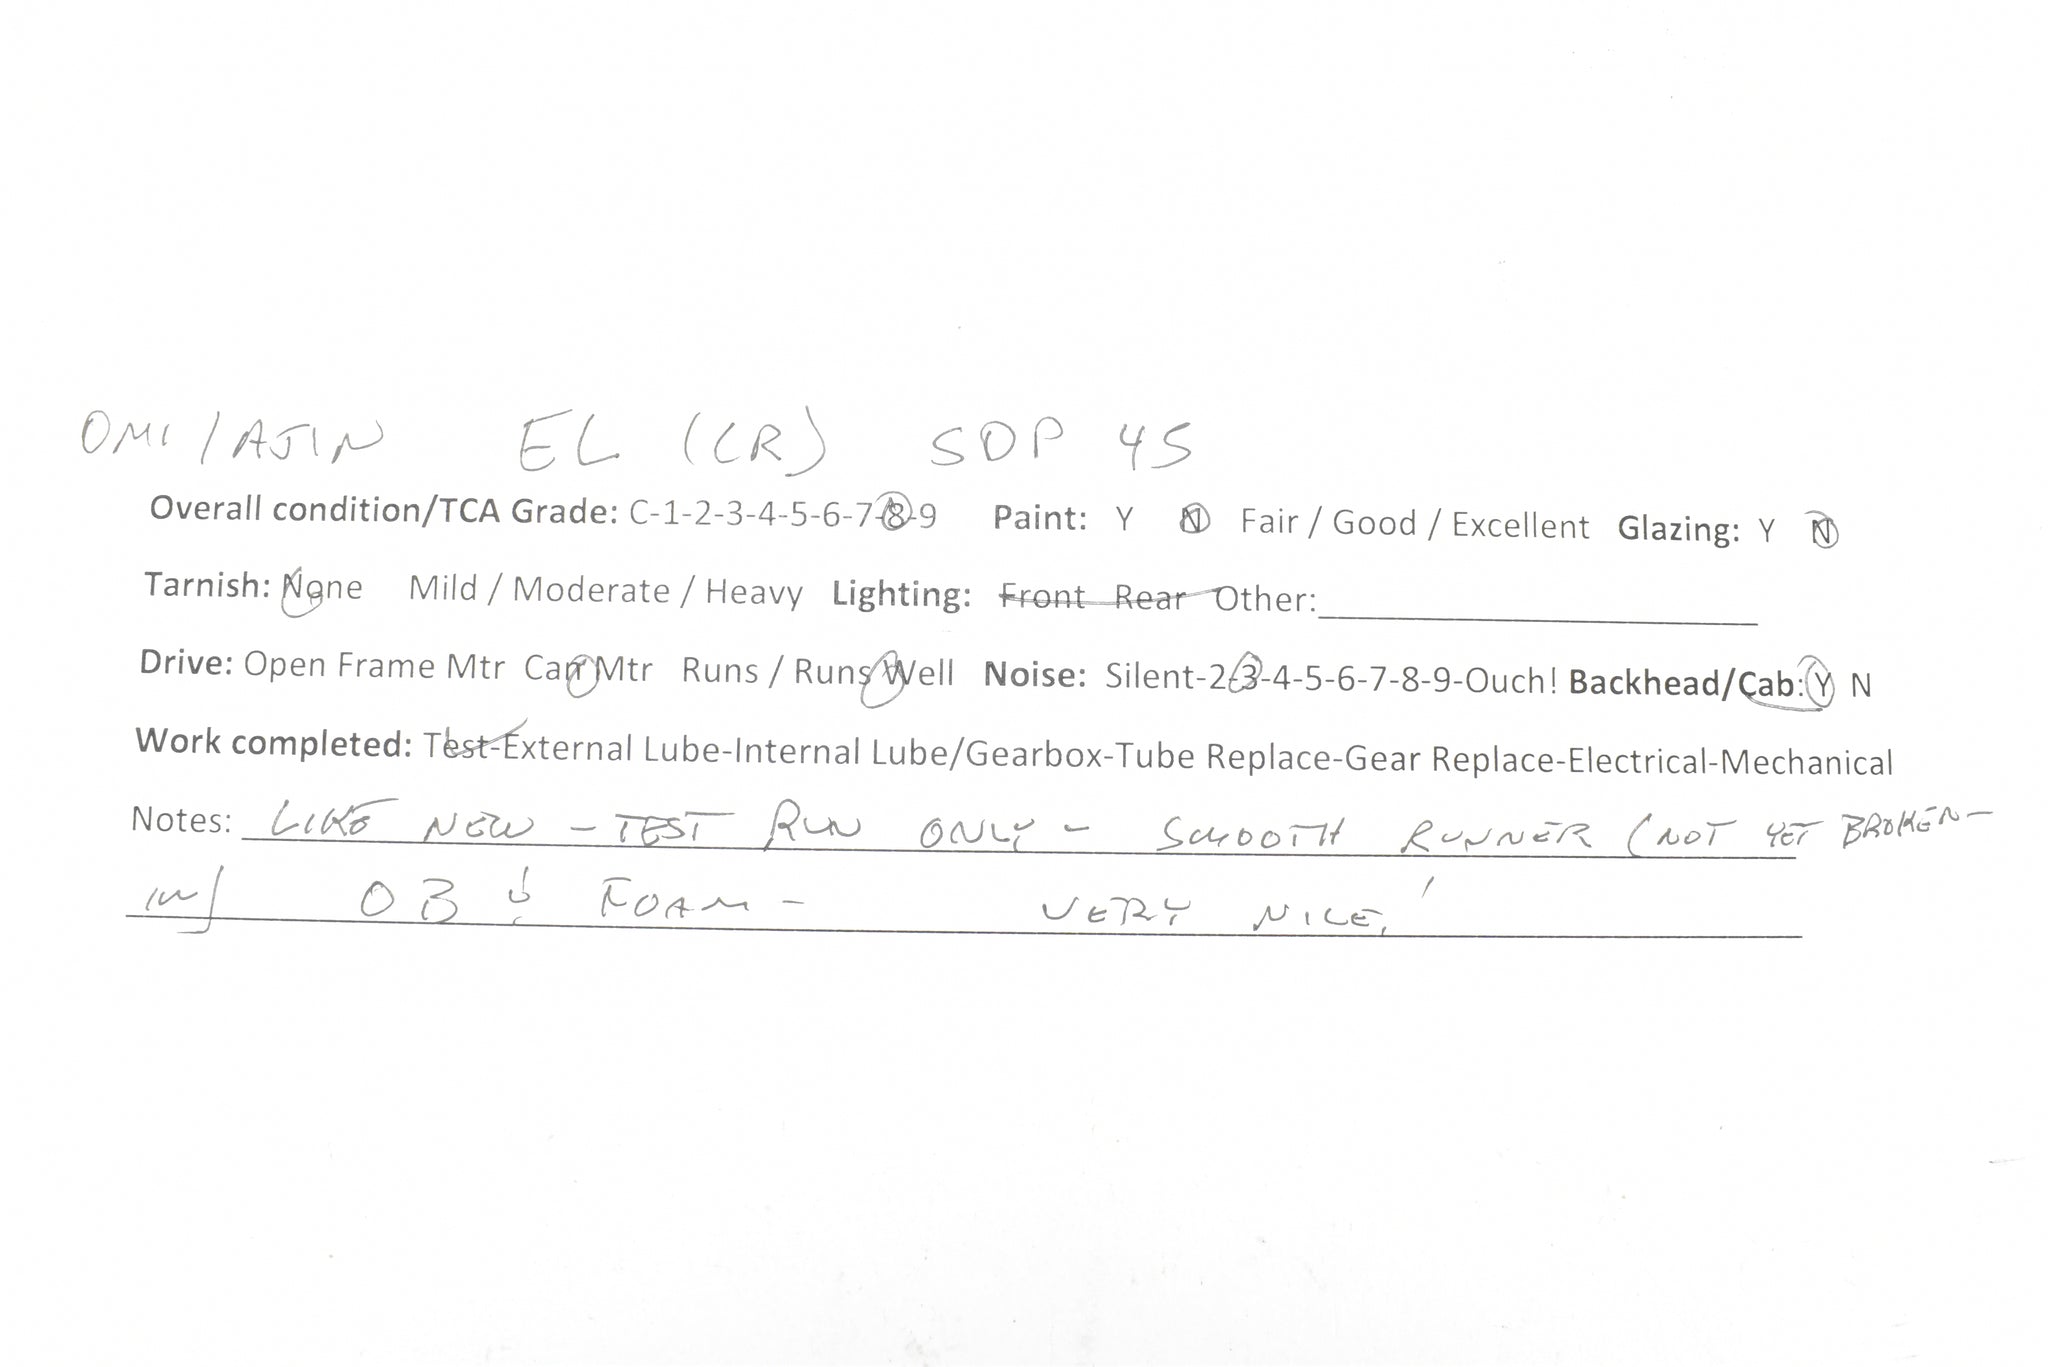 OMI/AJIN EL (CR) SDP 45
Overall condition/TCA Grade: C-1-2-3-4-5-6-7-8-9 Paint: Y N Fair / Good / Excellent Glazing: Y N
Tarnish: None Mild / Moderate / Heavy Lighting: Front Rear Other:
Drive: Open Frame Mtr Can Mtr Runs / Runs Well Noise: Silent-2-3-4-5-6-7-8-9-Ouch! Backhead/Cab: Y N
Work completed: Test-External Lube-Internal Lube/Gearbox-Tube Replace-Gear Replace-Electrical-Mechanical
Notes: LIKE NEW - TEST RUN ONLY - SMOOTH RUNNER (NOT YET BROKEN-
IN) OB & FOAM - VERY NICE!